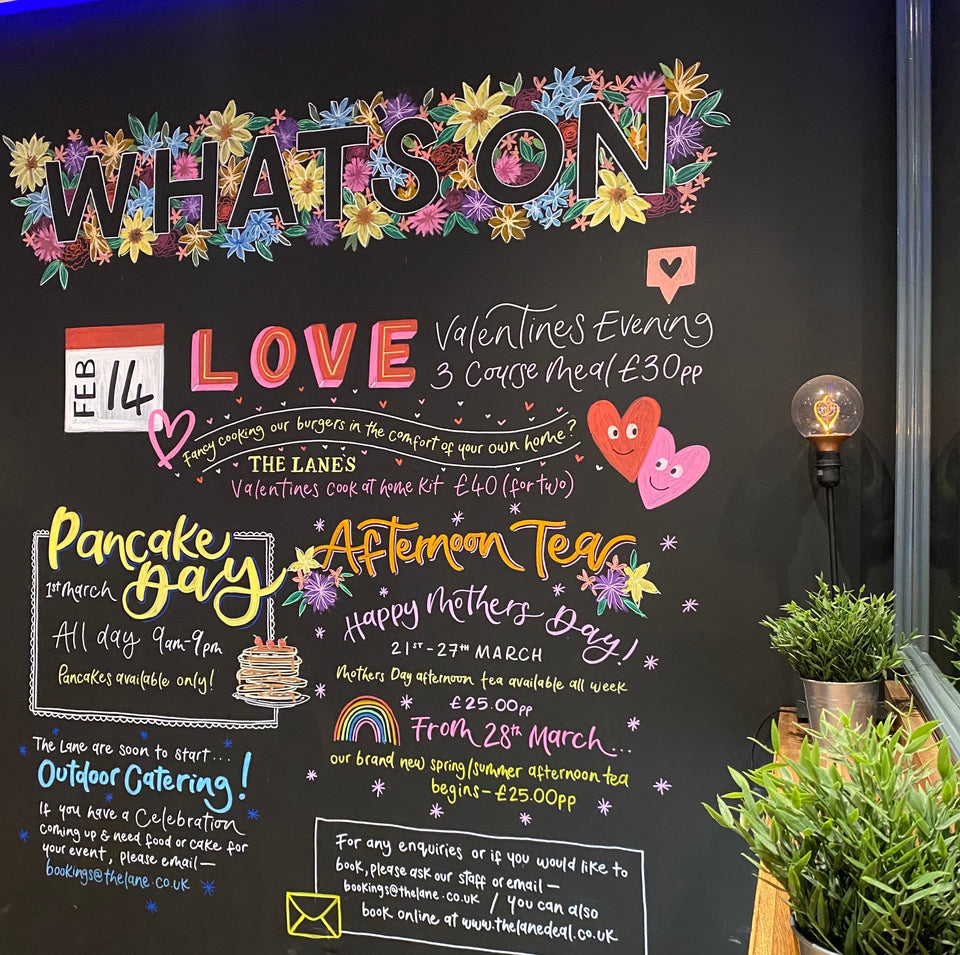 WHAT'S ON
FEB 14
LOVE
Valentines Evening
3 Course Meal £30pp
Fancy cooking our burgers in the comfort of your own home?
THE LANE'S
Valentines cook at home kit £40 (for two)
Pancake
Day
1st March
All day 9am-9pm
Pancakes available only!
Afternoon Tea
Happy Mothers Day!
21ST - 27TH MARCH
Mothers Day afternoon tea available all week
£25.00pp
From 28th March...
our brand new spring/summer afternoon tea
begins - £25.00pp
The Lane are soon to start...
Outdoor Catering!
If you have a Celebration
coming up & need food or cake for
your event, please email -
bookings@thelane.co.uk
For any enquiries or if you would like to
book, please ask our staff or email -
bookings@thelane.co.uk / you can also
book online at www.thelanedeal.co.uk